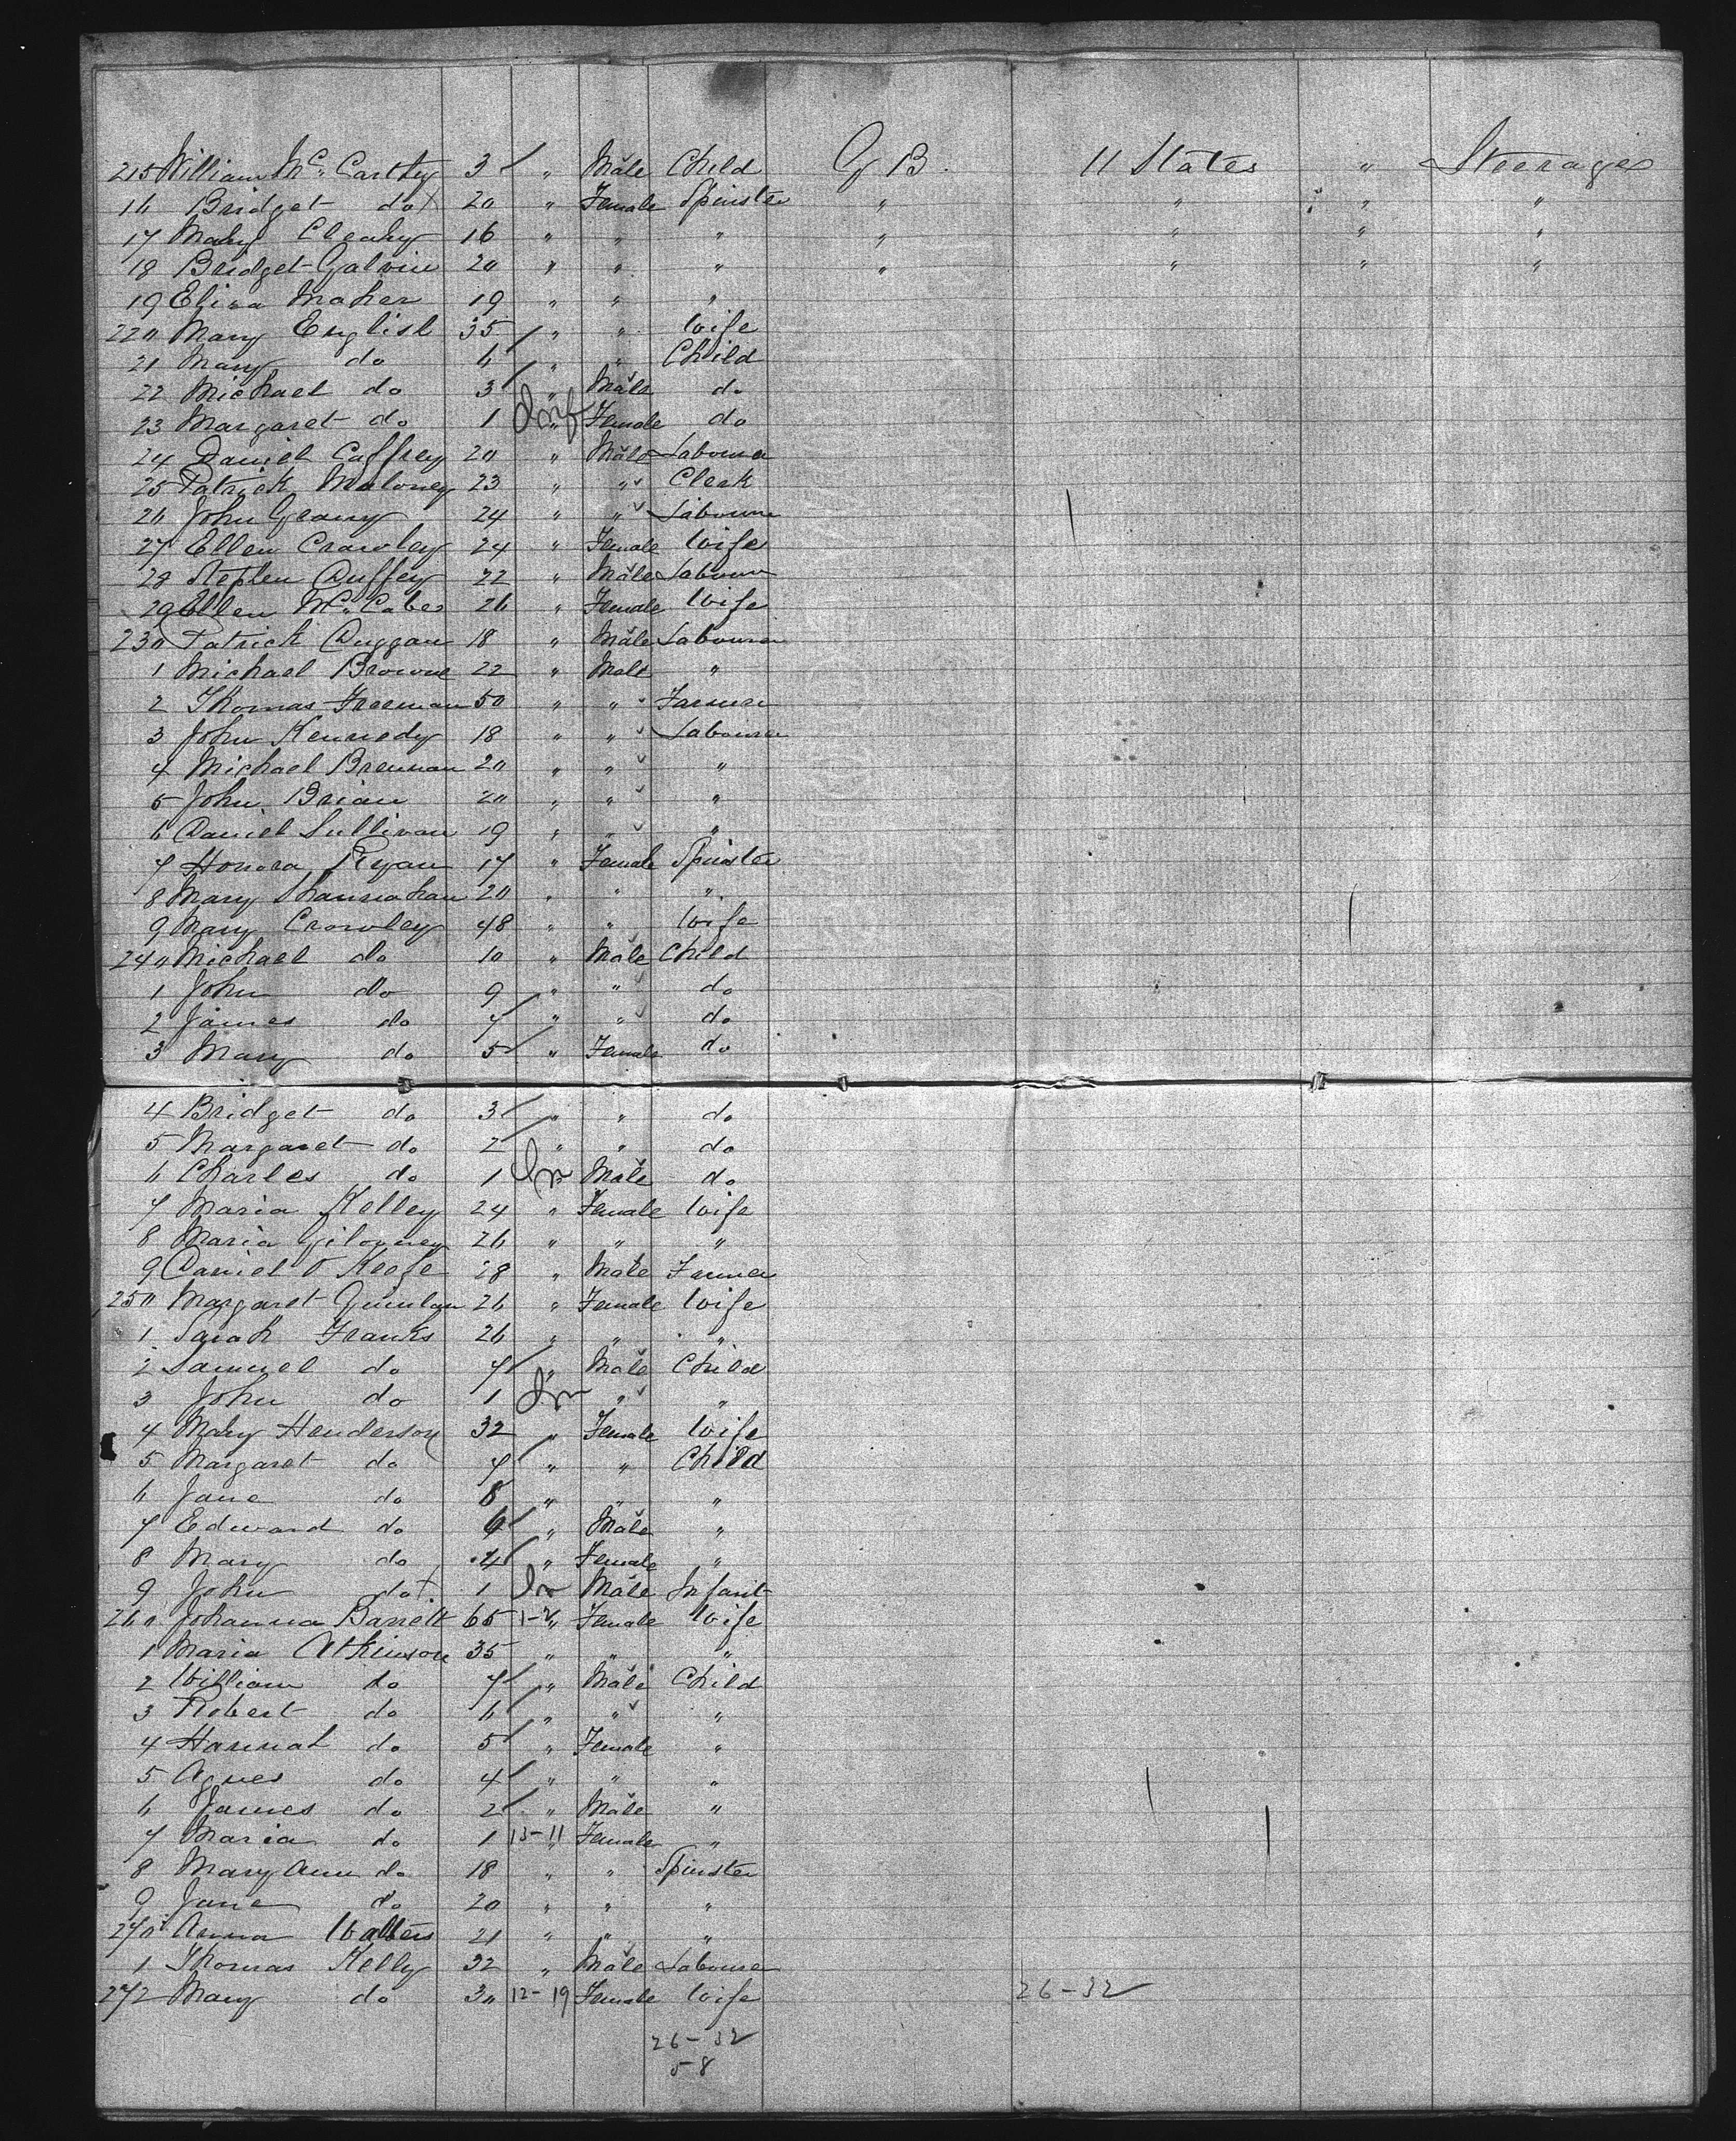 215 William McCarthy 3 " Male Child G B. U States " Steerage
16 Bridget do 20 " Female Spinster " " " "
17 Mary Cleary 16 " " " " " " "
18 Bridget Galvin 20 " " " " " " "
19 Eliza Maher 19 " " "
220 Mary English 35 " " Wife
21 Mary do 6 " " Child
22 Michael do 3 " Male do
23 Margaret do 1 Inf " Female do
24 Daniel Caffrey 20 " Male Labourer
25 Patrick Maloney 23 " " Clerk
26 John Geany 24 " " Labourer
27 Ellen Crawley 24 " Female Wife
28 Stephen Duffey 22 " Male Labourer
29 Ellen McCabe 26 " Female Wife
230 Patrick Duggan 18 " Male Labourer
1 Michael Browne 22 " Male "
2 Thomas Freeman 50 " " Farmer
3 John Kennedy 18 " " Labourer
4 Michael Brennan 20 " " "
5 John Brian 20 " " "
6 Daniel Sullivan 19 " " "
7 Honora Ryan 17 " Female Spinster
8 Mary Shannahan 20 " " "
9 Mary Crowley 48 " " Wife
240 Michael do 10 " Male Child
1 John do 9 " " do
2 James do 7 " " do
3 Mary do 5 " Female do
4 Bridget do 3 " " do
5 Margaret do 2 " " do
6 Charles do 1 In Male do
7 Maria Kelley 24 " Female Wife
8 Maria 26 " " "
9 Daniel O Keefe 28 " Male Farmer
250 Margaret Quinlan 26 " Female Wife
1 Sarah Franks 26 " " "
2 Samuel do 7 " Male Child
3 John do 1 In " "
4 Mary Henderson 32 " Female Wife
5 Margaret do 7 " " Child
6 Jane do 8 " " "
7 Edward do 6 " Male "
8 Mary do 4 " Female "
9 John do 1 In Male Infant
260 Johanna Barrett 65 1-2 " Female Wife
1 Maria Atkinson 35 " " "
2 William do 7 " Male Child
3 Robert do 6 " " "
4 Hannah do 5 " Female "
5 Agnes do 4 " " "
6 James do 2 " Male "
7 Maria do 1 13-11 " Female "
8 Mary Ann do 18 " " Spinster
9 Jane do 20 " " "
270 Anna Walters 21 " " "
1 Thomas Kelly 32 " Male Labourer
272 Mary do 30 12-19 Female Wife 26-32
26-32
58